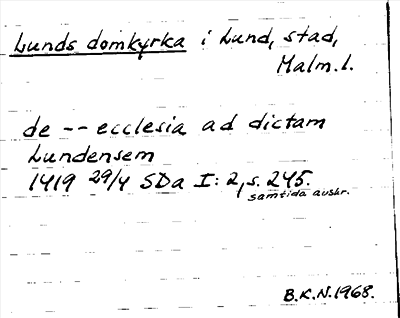 Lunds domkyrka i Lund, stad,
Malm. l.
de -- ecclesia ad dictam
Lundensem
1419 29/4 SDa I: 2, s. 245.
samtida avskr.
B.K.N. 1968.